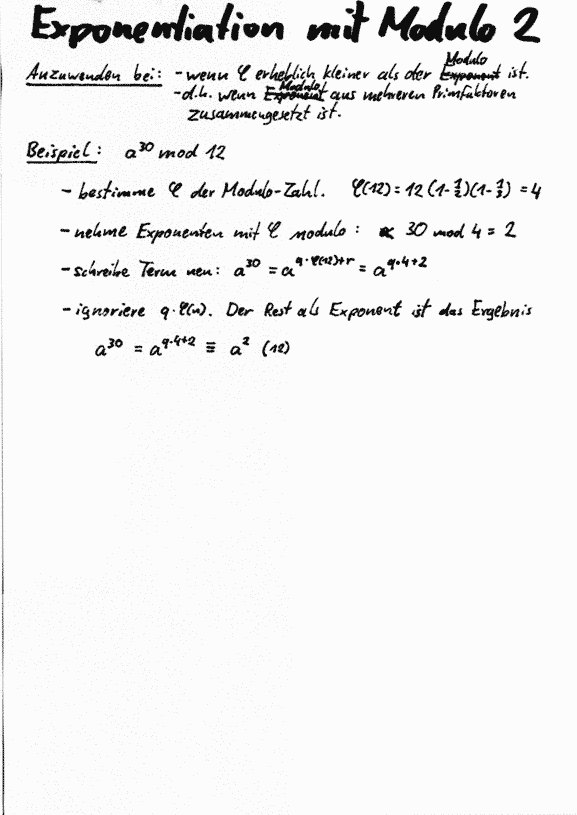 Exponentiation mit Modulo 2
Modulo
Anzuwenden bei: - wenn φ erheblich kleiner als der Exponent ist.
Modulo
- d.h. wenn Exponent aus mehreren Primfaktoren
zusammengesetzt ist.
Beispiel: a^30 mod 12
- bestimme φ der Modulo-Zahl. φ(12) = 12 (1-1/2)(1-1/3) = 4
- nehme Exponenten mit φ modulo: 30 mod 4 = 2
- schreibe Term neu: a^30 = a^(q·φ(12)+r) = a^(q·4+2)
- ignoriere q·φ(n). Der Rest als Exponent ist das Ergebnis
a^30 = a^(q·4+2) ≡ a^2 (12)